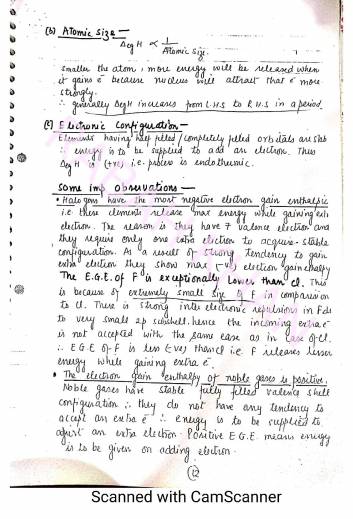 (b) Atomic Size -
ΔegH ∝ 1/Atomic Size.
Smaller the atom, more energy will be released when
it gains e⁻ because nucleus will attract that e⁻ more
strongly.
∴ generally ΔegH increases from L.H.S to R.H.S in a period.
(c) Electronic Configuration -
Elements having half filled/completely filled orbitals are stab
∴ energy is to be supplied to add an electron. Thus
ΔegH is (+ve) i.e. process is endothermic.
Some imp observations -
• Halogens have the most negative electron gain enthalpie
i.e these elements release max energy while gaining extra
electron. The reason is they have 7 valence electron and
they require only one extra electron to acquire stable
configuration. As a result of strong tendency to gain
extra electron they show max (-ve) electron gain enthalpy
The E.G.E. of F is exceptionally lower than Cl. This
is because of extremely small size of F in comparision
to Cl. There is strong inter electronic repulsions in F due
to very small 2p subshell. hence the incoming extra e⁻
is not accepted with the same ease as in case of Cl.
∴ E.G.E of F is less (-ve) than Cl i.e F releases lesser
energy while gaining extra e⁻.
• The electron gain enthalpy of noble gases is positive.
Noble gases have stable fully filled valence shell
configuration ∴ they do not have any tendency to
accept an extra e⁻ ∴ energy is to be supplied to
an extra electron. Positive E.G.E. means energy
is to be given on adding electron.
12
Scanned with CamScanner